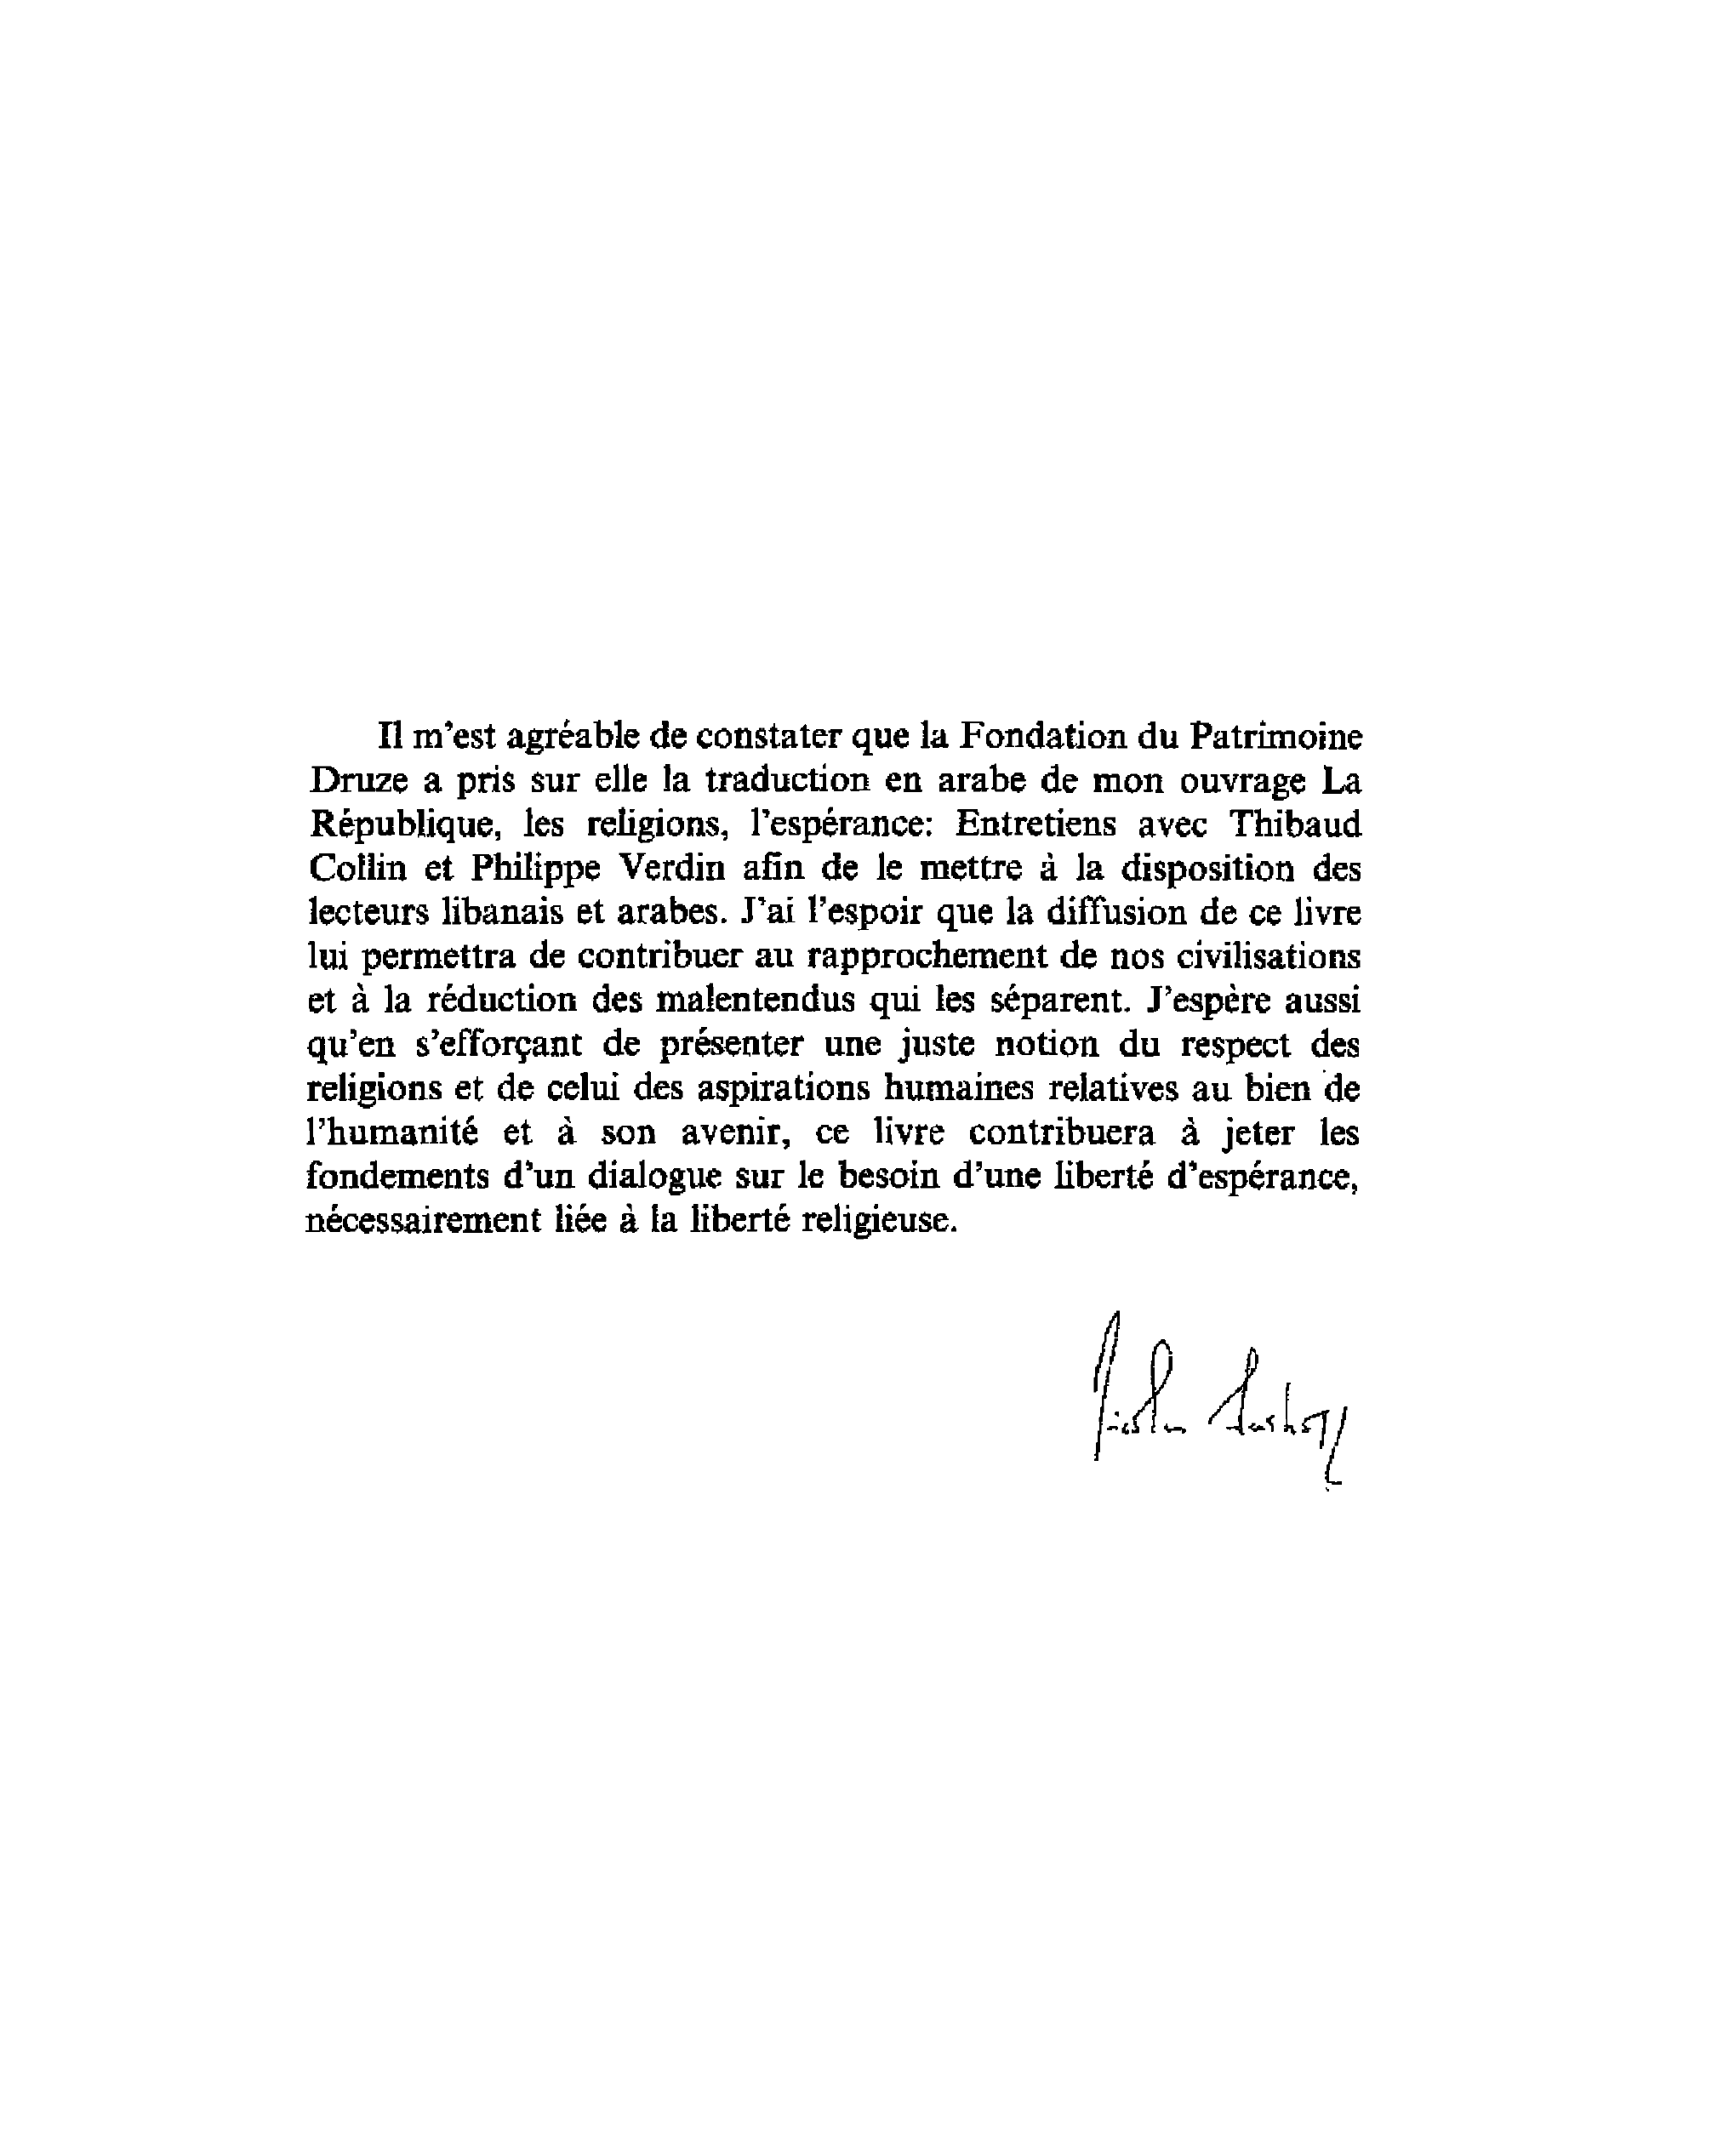 Il m'est agréable de constater que la Fondation du Patrimoine
Druze a pris sur elle la traduction en arabe de mon ouvrage La
République, les religions, l'espérance: Entretiens avec Thibaud
Collin et Philippe Verdin afin de le mettre à la disposition des
lecteurs libanais et arabes. J'ai l'espoir que la diffusion de ce livre
lui permettra de contribuer au rapprochement de nos civilisations
et à la réduction des malentendus qui les séparent. J'espère aussi
qu'en s'efforçant de présenter une juste notion du respect des
religions et de celui des aspirations humaines relatives au bien de
l'humanité et à son avenir, ce livre contribuera à jeter les
fondements d'un dialogue sur le besoin d'une liberté d'espérance,
nécessairement liée à la liberté religieuse.